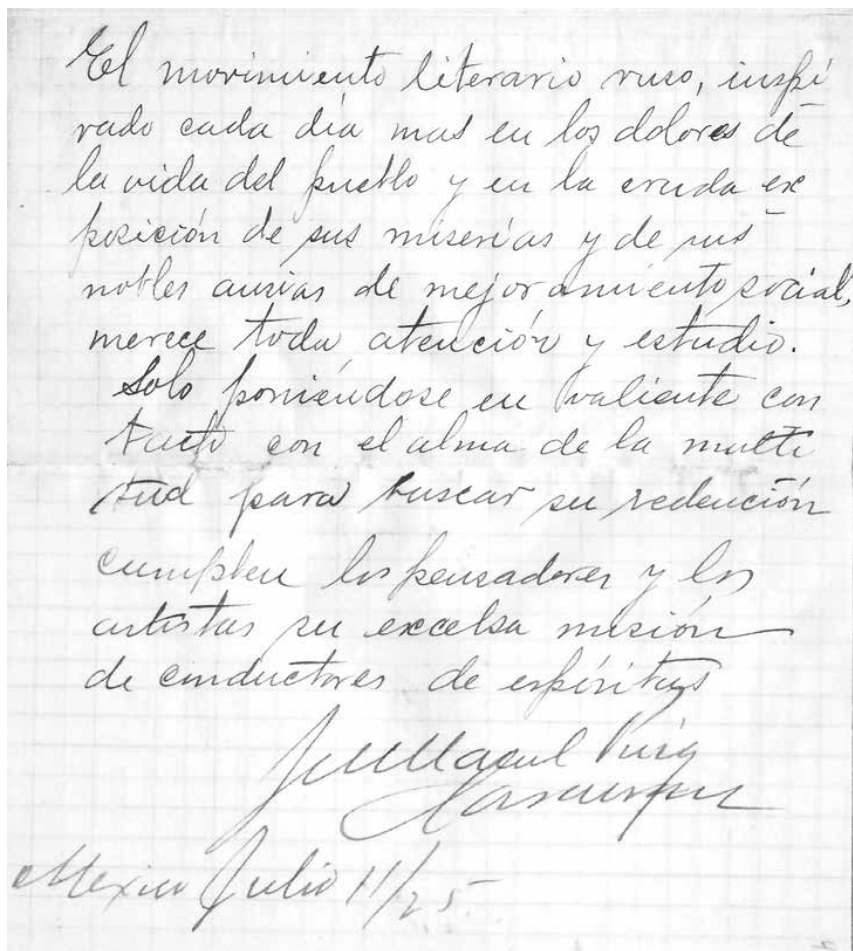 El movimiento literario ruso, inspi
rado cada día mas en los dolores de
la vida del pueblo y en la cruda ex
posición de sus miserias y de sus
nobles ansias de mejoramiento social,
merece toda atención y estudio.
Solo poniéndose en valiente con
tacto con el alma de la multi
tud para buscar su redención
cumplen los pensadores y los
artistas su excelsa misión
de conductores de espíritus
J M Puig
Casauranc
Mexico Julio 11/25